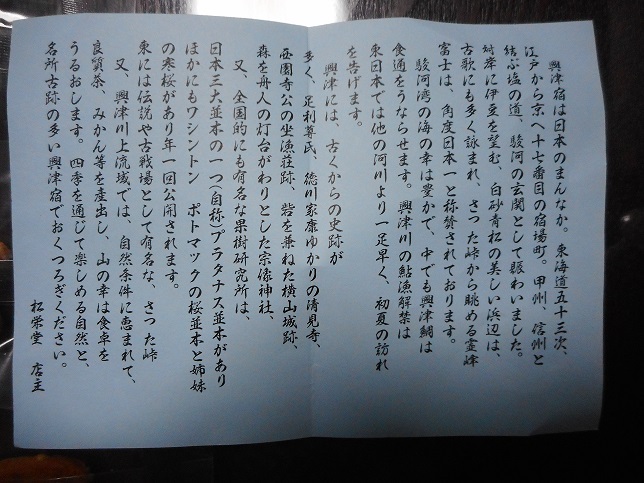 興津宿は日本のまんなか。東海道五十三次、
江戸から京へ十七番目の宿場町。甲州、信州と
結ぶ塩の道、駿河の玄関として賑わいました。
対岸に伊豆を望む、白砂青松の美しい浜辺は、
古歌にも多く詠まれ、さった峠から眺める霊峰
富士は、角度日本一と称賛されております。
駿河湾の海の幸は豊かで、中でも興津鯛は
食通をうならせます。興津川の鮎漁解禁は
東日本では他の河川より一足早く、初夏の訪れ
を告げます。
興津には、古くからの史跡が
多く、足利尊氏、徳川家康ゆかりの清見寺、
西園寺公の坐漁荘跡、砦を兼ねた横山城跡、
森を舟人の灯台がわりとした宗像神社、
又、全国的にも有名な果樹研究所は、
日本三大並木の一つ(自称)プラタナス並木があり
ほかにもワシントン　ポトマックの桜並木と姉妹
の寒桜があり年一回公開されます。
東には伝説や古戦場として有名な、さった峠
又、興津川上流域では、自然条件に恵まれて、
良質茶、みかん等を産出し、山の幸は食卓を
うるおします。四季を通じて楽しめる自然と、
名所古跡の多い興津宿でおくつろぎください。
松栄堂　店主